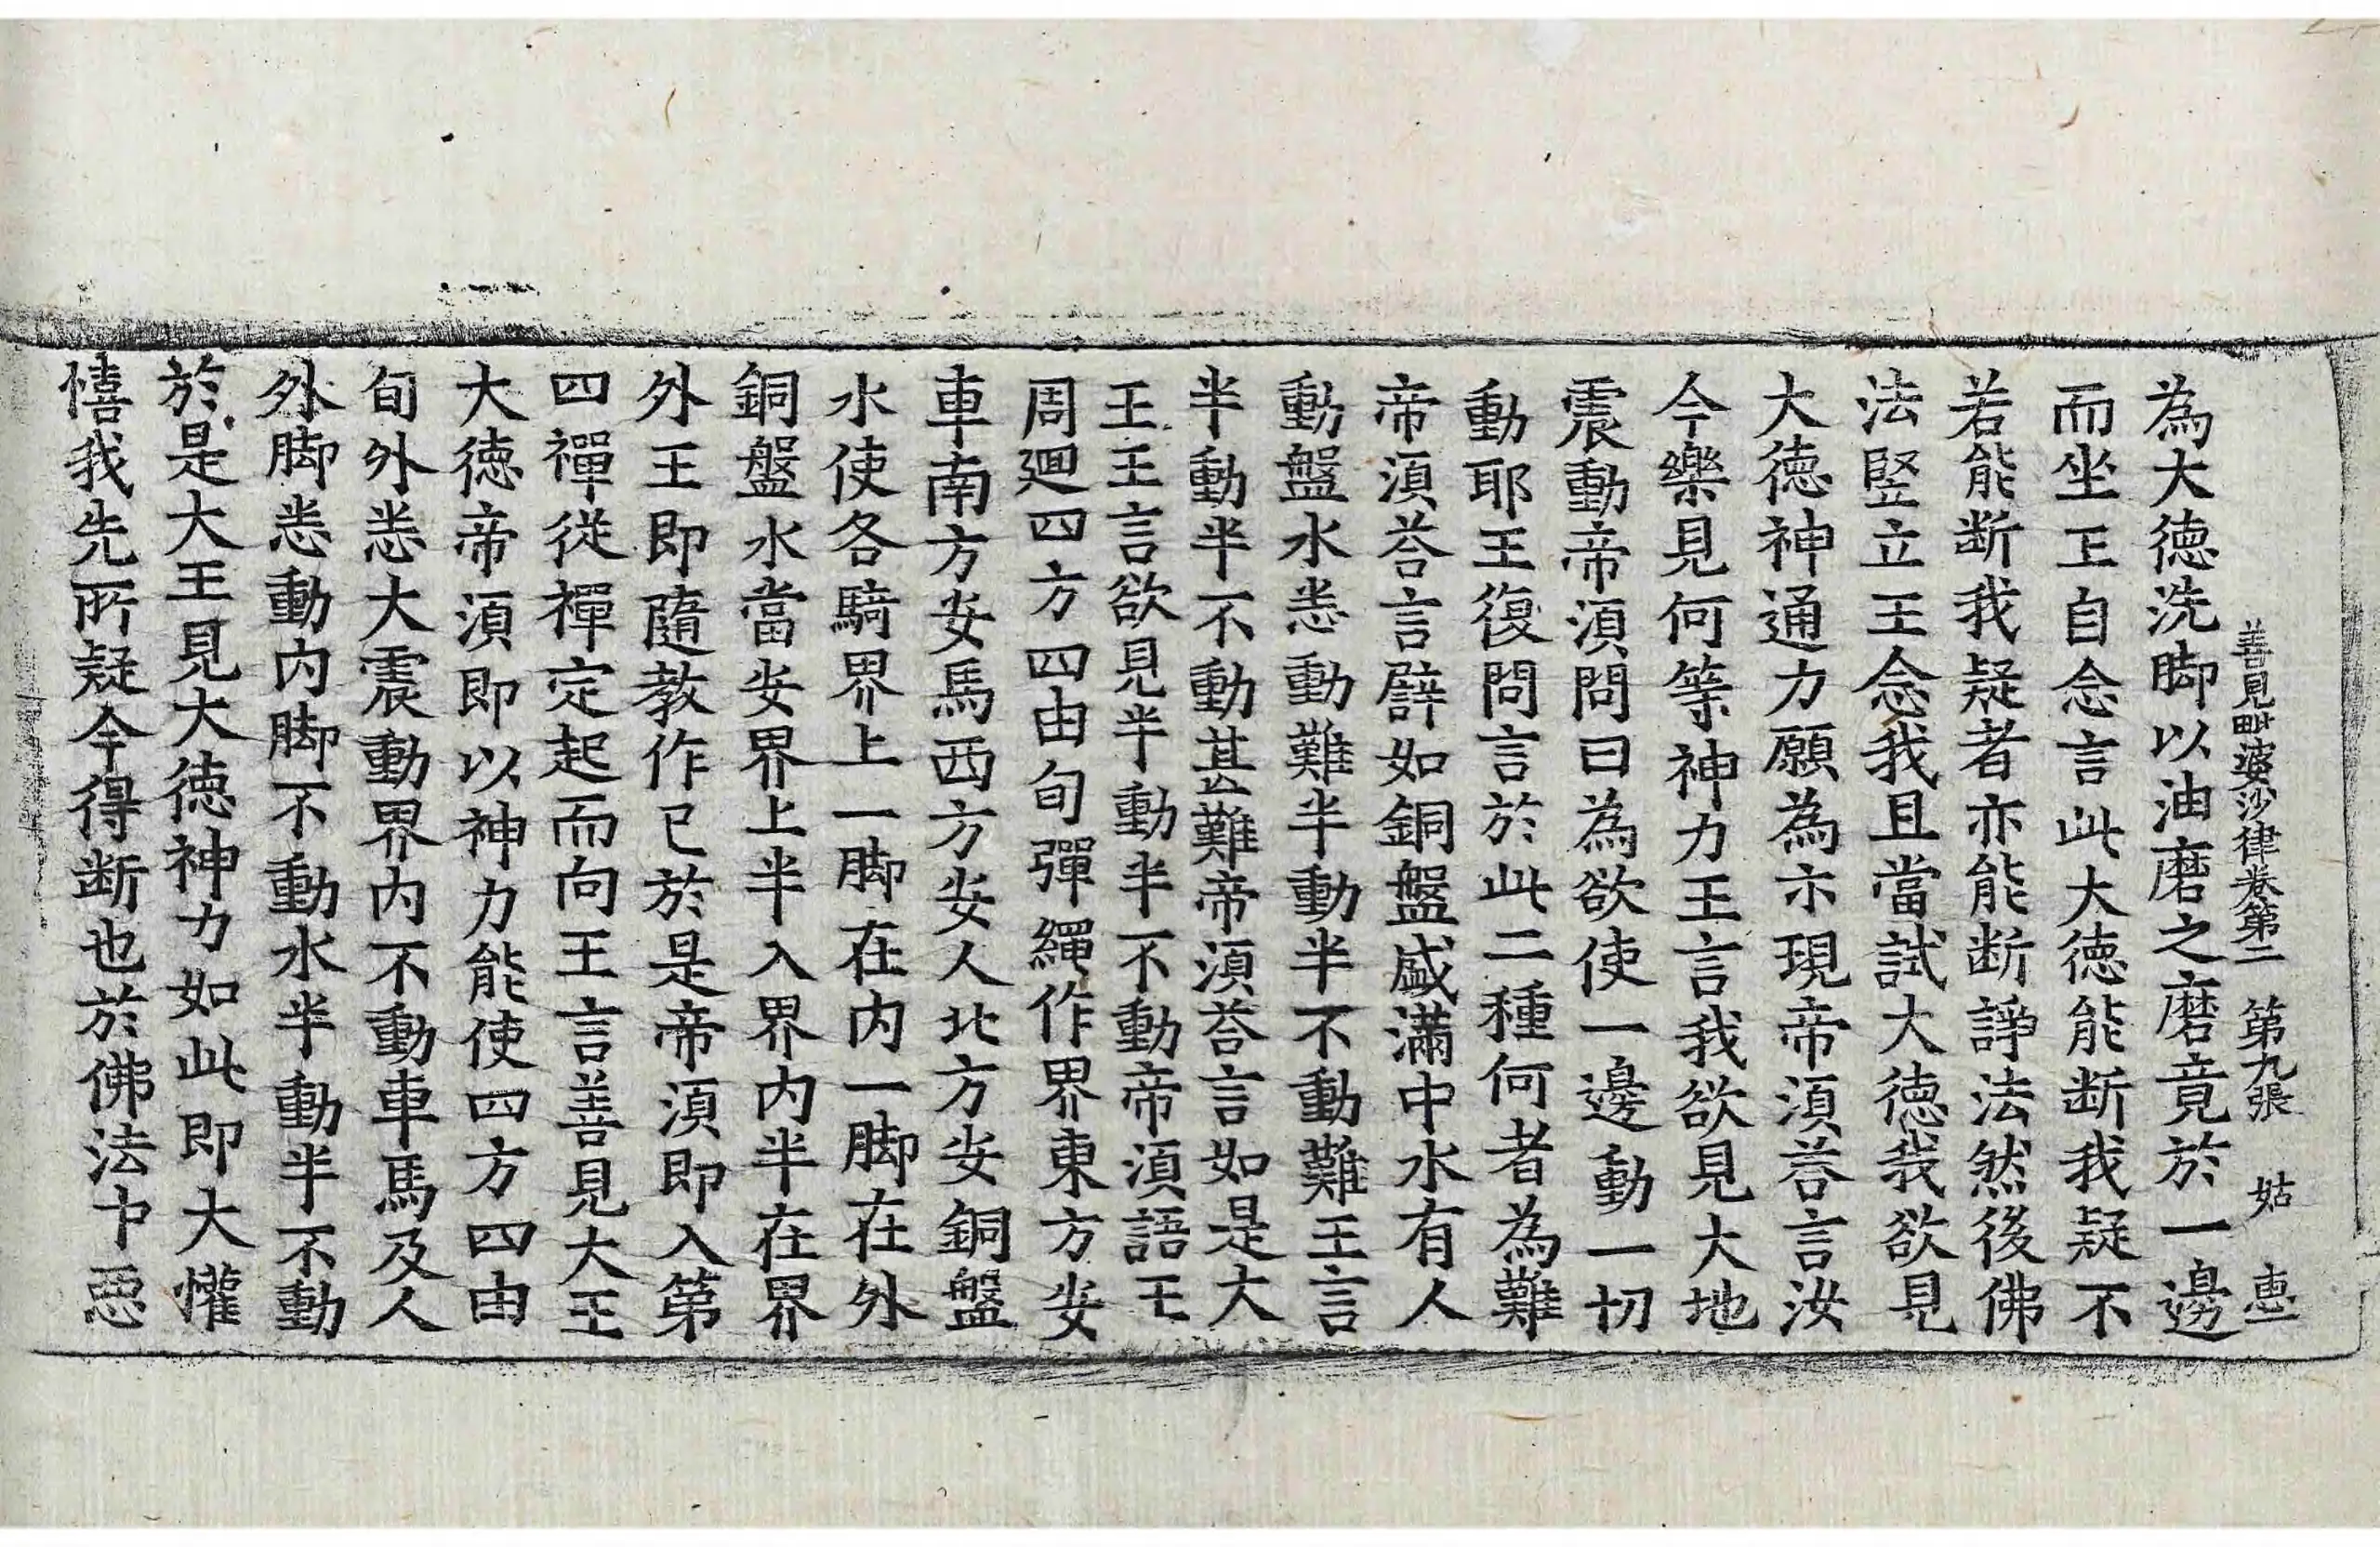 善見毗婆沙律卷第二 第九張 姑 惠
為大德洗脚以油磨之磨竟於一邊
而坐王自念言此大德能断我疑不
若能断我疑者亦能断諍法然後佛
法竪立王念我且當試大德我欲見
大德神通力願為示現帝湏荅言汝
今樂見何等神力王言我欲見大地
震動帝湏問曰為欲使一邊動一切
動耶王復問言於此二種何者為難
帝湏荅言譬如銅盤盛滿中水有人
動盤水悉動難半動半不動難王言
半動半不動甚難帝湏荅言如是大
王王言欲見半動半不動帝湏語王
周迴四方四由旬彈繩作界東方安
車南方安馬西方安人北方安銅盤
水使各騎界上一脚在内一脚在外
銅盤水當安界上半入界内半在界
外王即隨教作已於是帝湏即入第
四禪從禪定起而向王言善見大王
大德帝湏即以神力能使四方四由
旬外悉大震動界内不動車馬及人
外脚悉動内脚不動水半動半不動
於是大王見大德神力如此即大懽
憘我先所疑今得断也於佛法中惡